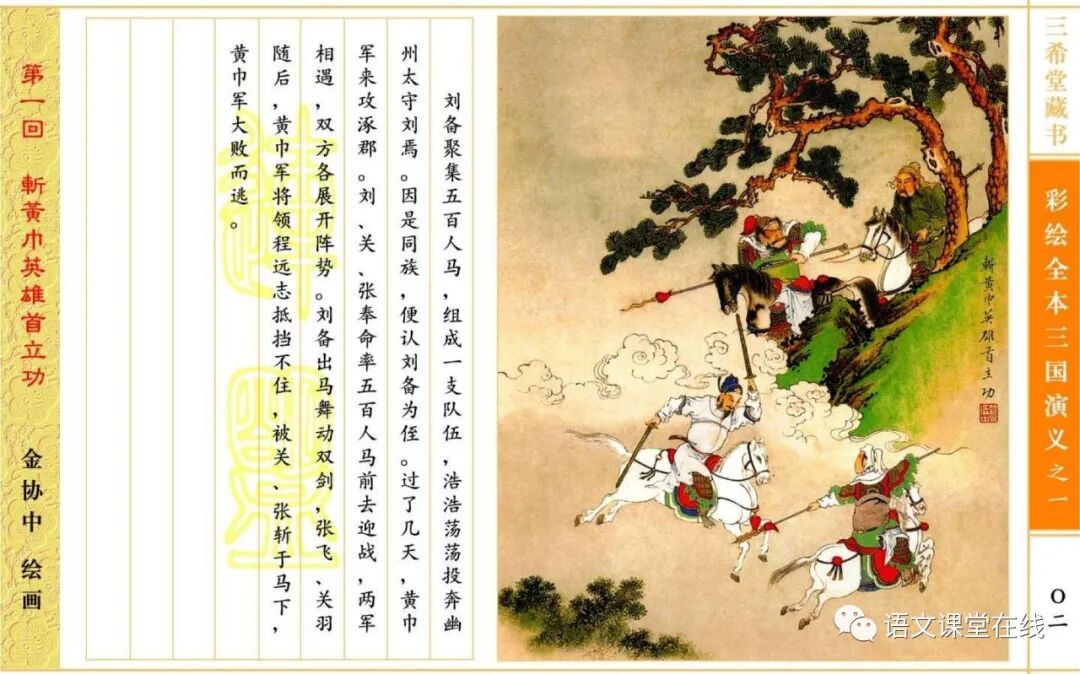 三希堂藏书
彩绘全本三国演义之一
〇二
斩黄巾英雄首立功
刘备聚集五百人马，组成一支队伍，浩浩荡荡投奔幽
州太守刘焉。因是同族，便认刘备为侄。过了几天，黄巾
军来攻涿郡。刘、关、张奉命率五百人马前去迎战，两军
相遇，双方各展开阵势。刘备出马舞动双剑，张飞、关羽
随后，黄巾军将领程远志抵挡不住，被关、张斩于马下，
黄巾军大败而逃。
第一回 斬黃巾英雄首立功
金协中 绘画
语文课堂在线